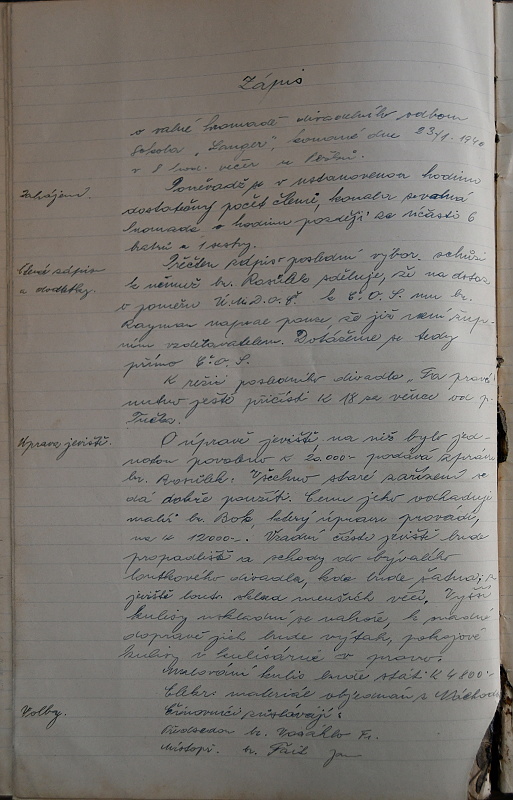 Zápis
o valné hromadě divadelního odboru
Sokola "Langer", konané dne 23/1. 1940
v 8 hod. večer u
Zahájení.
Poněvadž se v ustanovenou hodinu
dostatečný počet členů, konala se valná
hromada o hodinu později za účasti 6
bratrů a 1 sestry.
Čtení zápisu
a dodatky.
Přečten zápis poslední výbor. schůze
k němuž br. sděluje, že na dotaz
o poměru Ú.M.D.O.Č. k Č.O.S. mu br.
Rayman napsal pouze, že již není župním
vzdělavatelem. Dotážeme se tedy
přímo Č.O.S.
K režii posledního divadla
nutno ještě přičísti K 18 za věnce od p.
Úprava jeviště.
O úpravě jeviště, na niž bylo jed-
notou povoleno K 20.000- podává zprávu
br. Všechno staré zařízení se
dá dobře použíti. Cenu jeho odhaduje
malíř br. Bok, který úpravu provádí,
na K 12000-. Vzadu části jeviště bude
propadliště a schody do bývalého
loutkového divadla, kde bude šatna;
jeviště sklad menších věcí. Vyšší
kulisy uskladní se nahoře, k snadné
dopravě jich bude výtah, pokojové
kulisy v kulisárně v pravo.
Malování kulis bude státi K 4800-
Elektr. materiál objednán z Náchoda
Volby.
Činovníci zůstávají:
Předsedou br. Fr.
Místopř. br.